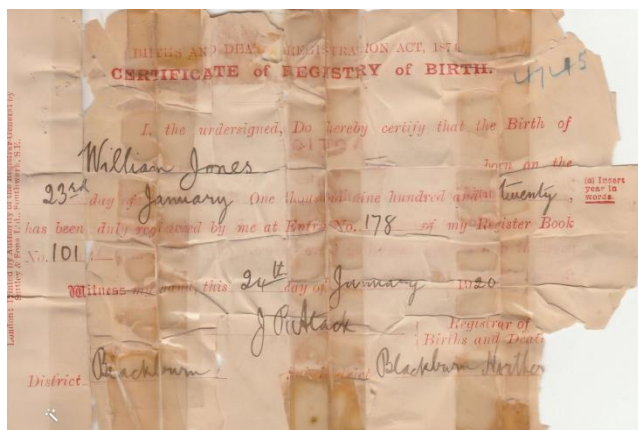 BIRTHS AND DEATHS REGISTRATION ACT, 1874
CERTIFICATE of REGISTRY of BIRTH.
4745
I, the undersigned, Do hereby certify that the Birth of
William Jones born on the
23rd day of January One thousand nine hundred and twenty,
(a) Insert year in words.
has been duly registered by me at Entry No. 178 of my Register Book
No. 101
Witness my hand, this 24th day of January 1920
J
Registrar of
Births and Death
District Blackburn Blackburn
London: Printed by Authority of the Registrar General by
& Sons Ltd., Southwark, S.E.